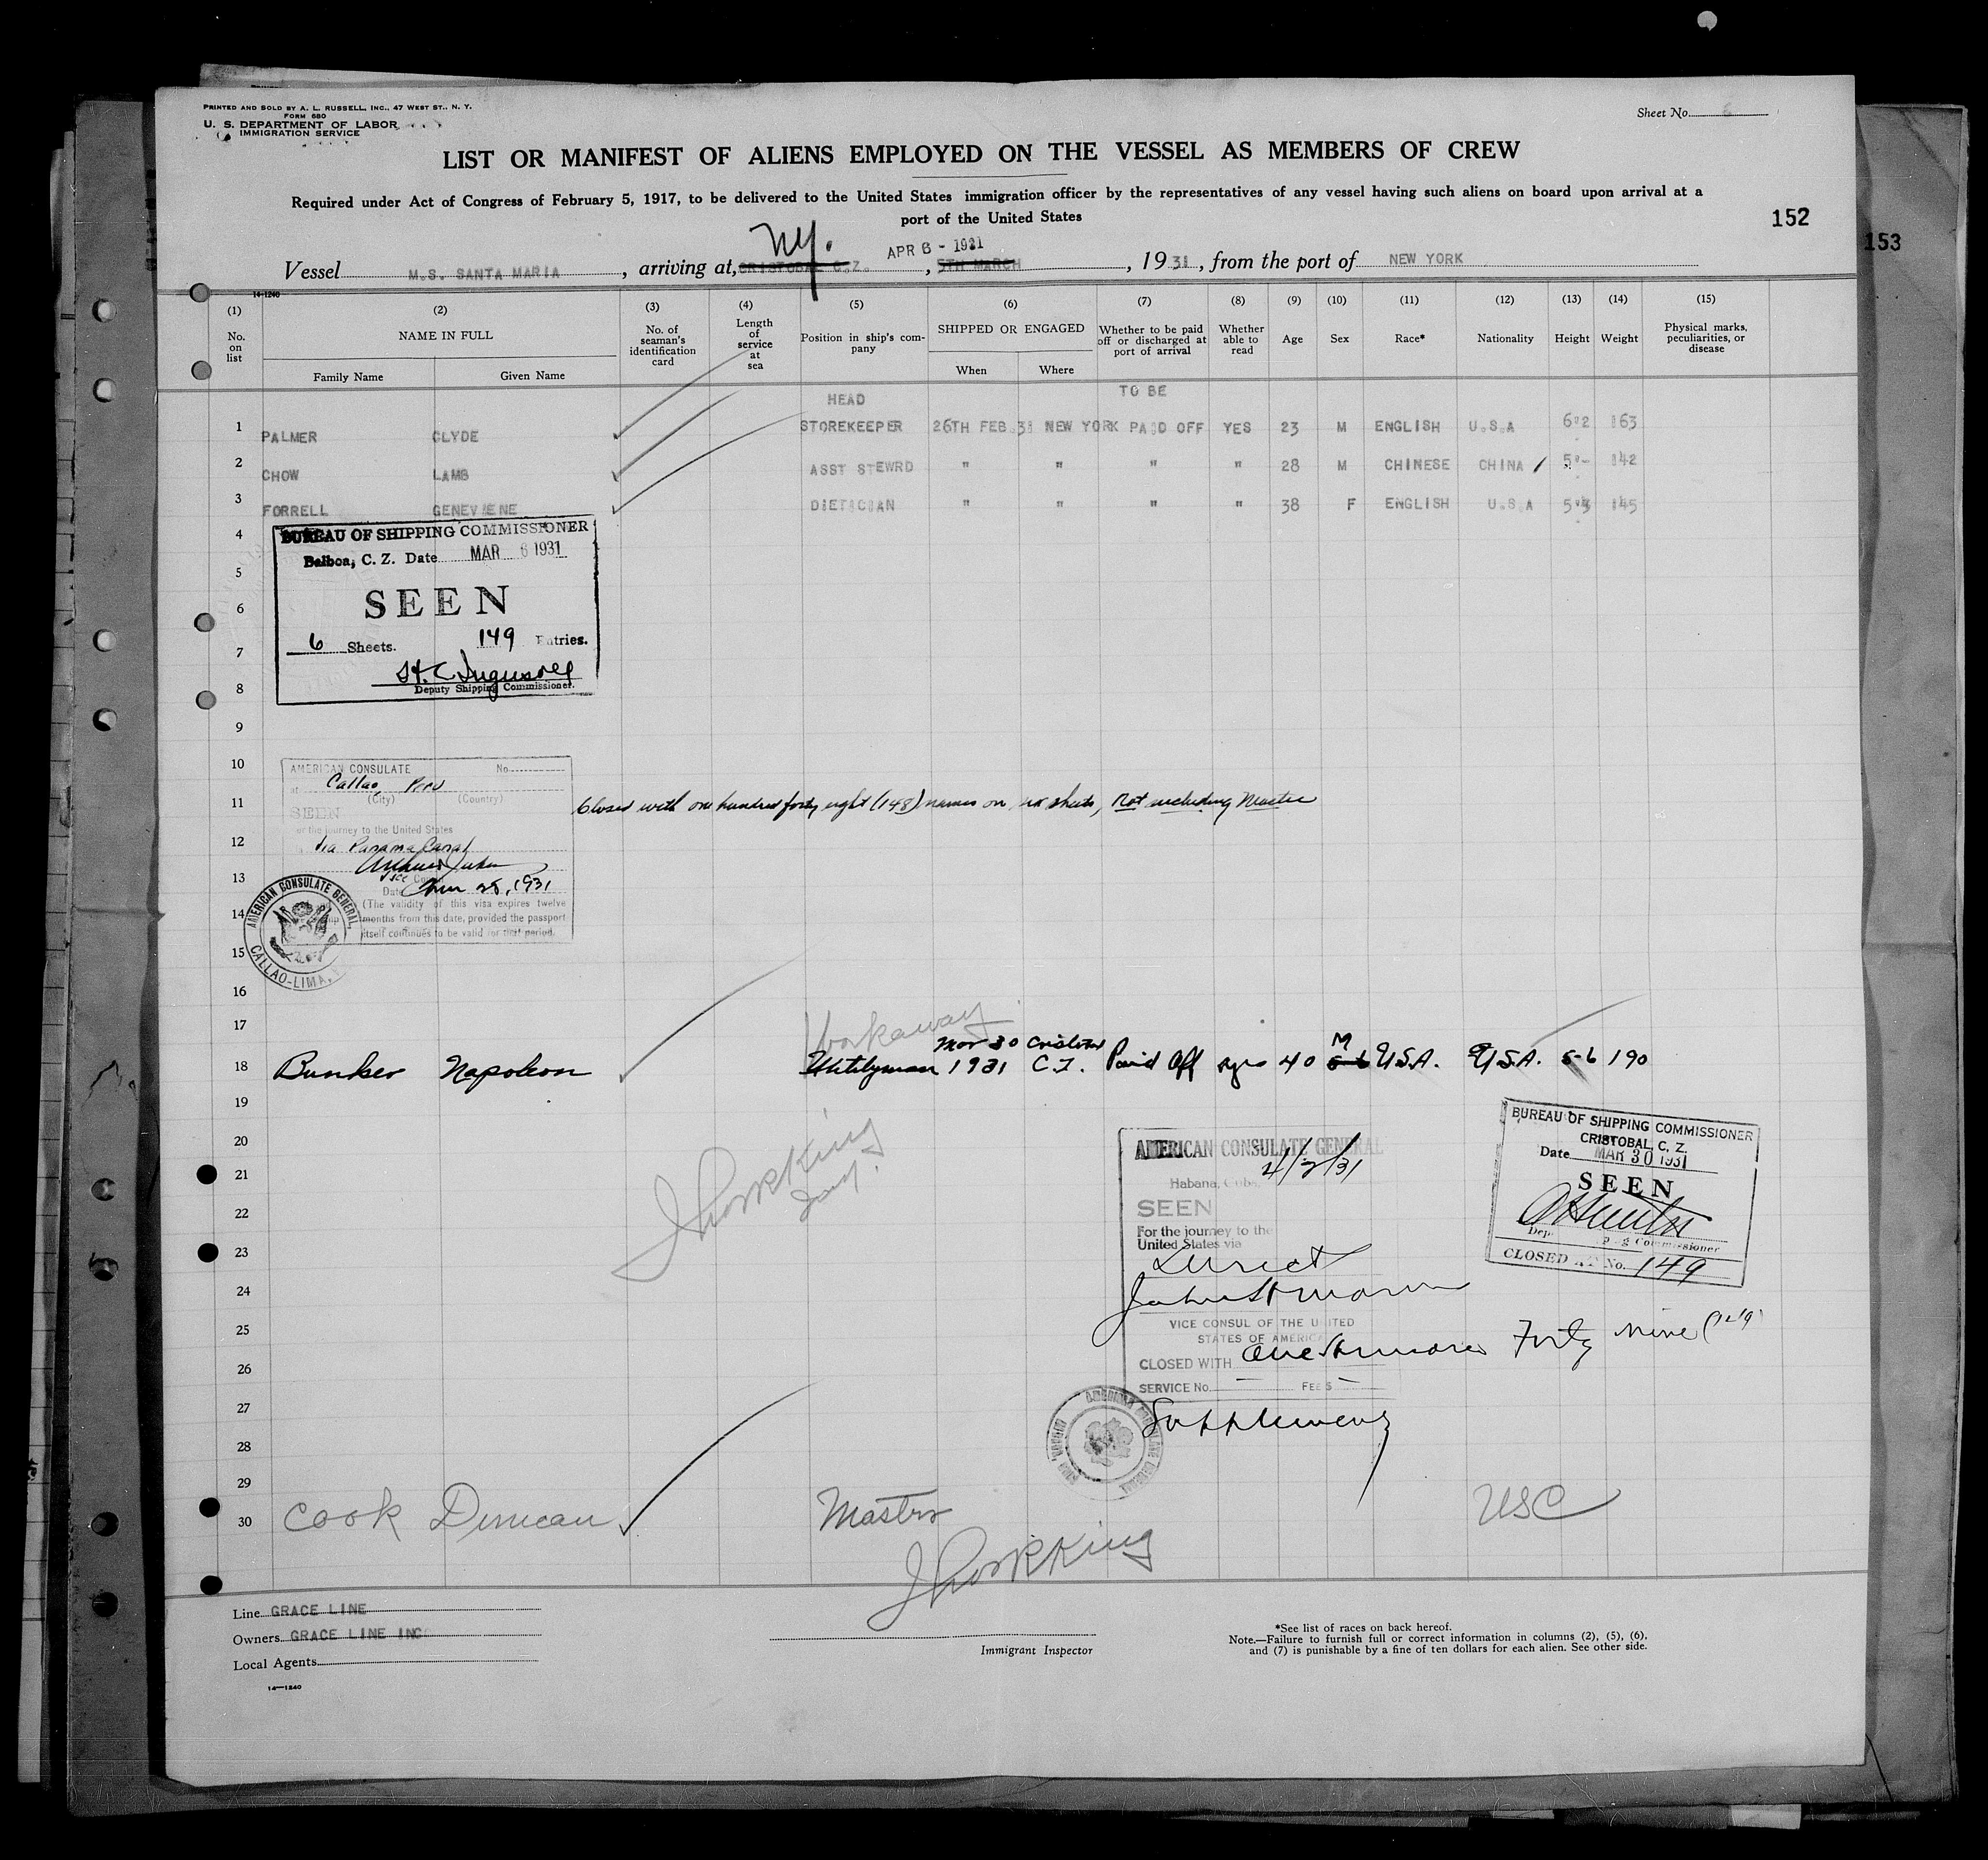 PRINTED AND SOLD BY A. L. RUSSELL, INC., 47 WEST ST., N. Y.
FORM 680
U. S. DEPARTMENT OF LABOR
IMMIGRATION SERVICE
Sheet No. 6
LIST OR MANIFEST OF ALIENS EMPLOYED ON THE VESSEL AS MEMBERS OF CREW
Required under Act of Congress of February 5, 1917, to be delivered to the United States immigration officer by the representatives of any vessel having such aliens on board upon arrival at a
port of the United States
152
153
NY. APR 6 - 1931
Vessel M.S. SANTA MARIA, arriving at, CRISTOBAL C.Z., 5TH MARCH, 1931, from the port of NEW YORK
14-1240
(1) (2) (3) (4) (5) (6) (7) (8) (9) (10) (11) (12) (13) (14) (15)
No. on list
NAME IN FULL
Family Name Given Name
No. of seaman's identification card
Length of service at sea
Position in ship's company
SHIPPED OR ENGAGED
When Where
Whether to be paid off or discharged at port of arrival
Whether able to read
Age
Sex
Race*
Nationality
Height
Weight
Physical marks, peculiarities, or disease
HEAD TO BE
1 PALMER CLYDE STOREKEEPER 26TH FEB.31 NEW YORK PAID OFF YES 23 M ENGLISH U.S.A 6'2 163
2 CHOW LAMB ASST STEWRD " " " " 28 M CHINESE CHINA 5'- 142
3 FORRELL GENEVIENE DIETICIAN " " " " 38 F ENGLISH U.S.A 145
4
5
6
7
8
9
10
11
12
13
14
15
16
17
BUREAU OF SHIPPING COMMISSIONER
Balboa, C. Z. Date MAR 6 1931
SEEN
6 Sheets. 149 Entries.
Deputy Shipping Commissioner.
AMERICAN CONSULATE No.
at Callao, Peru
(City) (Country)
SEEN
For the journey to the United States
via Panama Canal
Vice Consul
Date 25, 1931
(The validity of this visa expires twelve
months from this date, provided the passport
itself continues to be valid for that period.
AMERICAN CONSULATE GENERAL
CALLAO-LIMA,
Closed with one hundred forty eight (148) names on six sheets, Not including Master
Workaway
18 Bunker Napoleon Utilityman Mar 30 1931 Cristobal C.Z. Paid Off yes 40 M 5-6 U.S.A. U.S.A. 5-6 190
19
20
21
22
23
24
25
26
27
28
29
AMERICAN CONSULATE GENERAL
Habana, Cuba, 4/2/31
SEEN
For the journey to the
United States via
Direct
VICE CONSUL OF THE UNITED
STATES OF AMERICA
CLOSED WITH One Forty Nine (149)
SERVICE No. FEE $
BUREAU OF SHIPPING COMMISSIONER
CRISTOBAL, C. Z.
Date MAR 30 1931
SEEN
Deputy Shipping Commissioner
CLOSED AT No. 149
30 Cook Duncan Master USC
Line GRACE LINE
Owners GRACE LINE INC
Local Agents
14-1240
Immigrant Inspector
*See list of races on back hereof.
Note.—Failure to furnish full or correct information in columns (2), (5), (6),
and (7) is punishable by a fine of ten dollars for each alien. See other side.